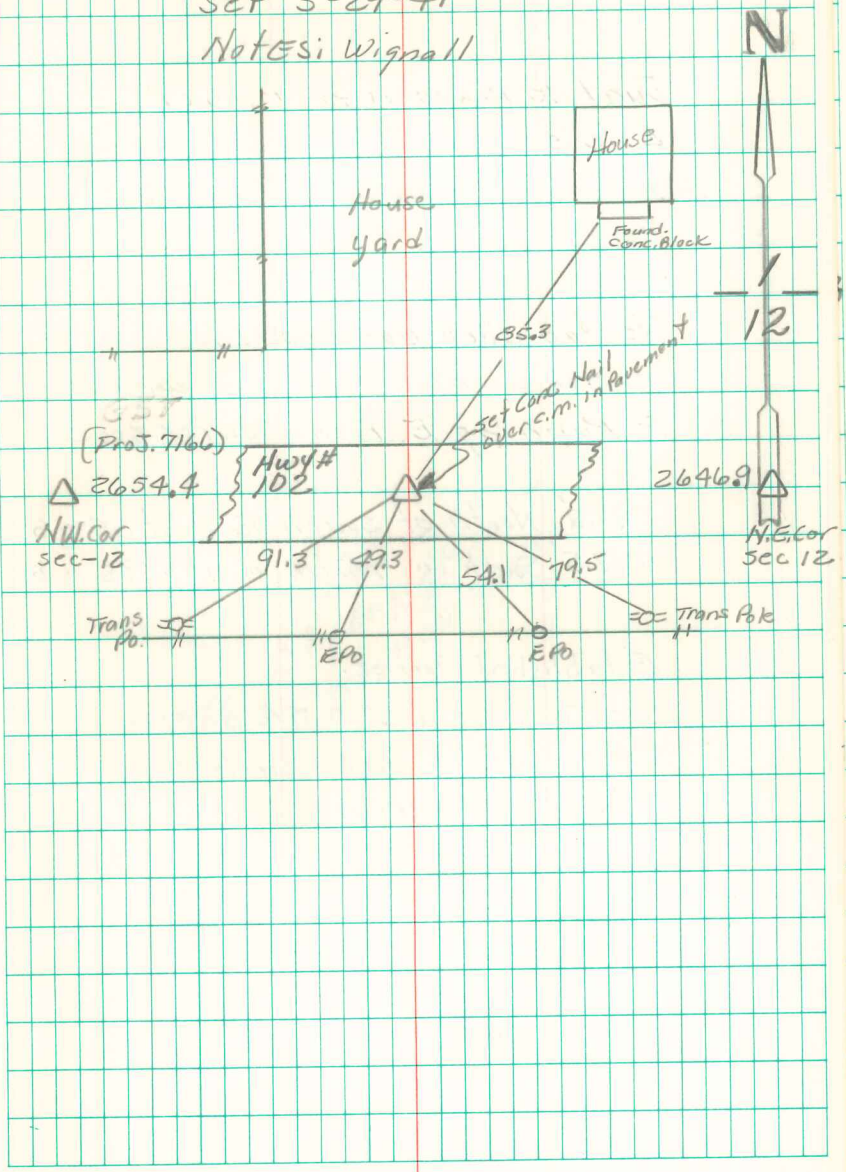 Notes: Wignall
N
House
House
yard
Found.
Conc. Block
1
12
85.3
Set Conc. Nail
over c.m. in Pavement
(Proj. 7166)
Hwy #
102
2654.4
2646.9
N.W. Cor
Sec-12
N.E. Cor
Sec 12
91.3
49.3
54.1
79.5
Trans
Po.
EPo
EPo
Trans Pole